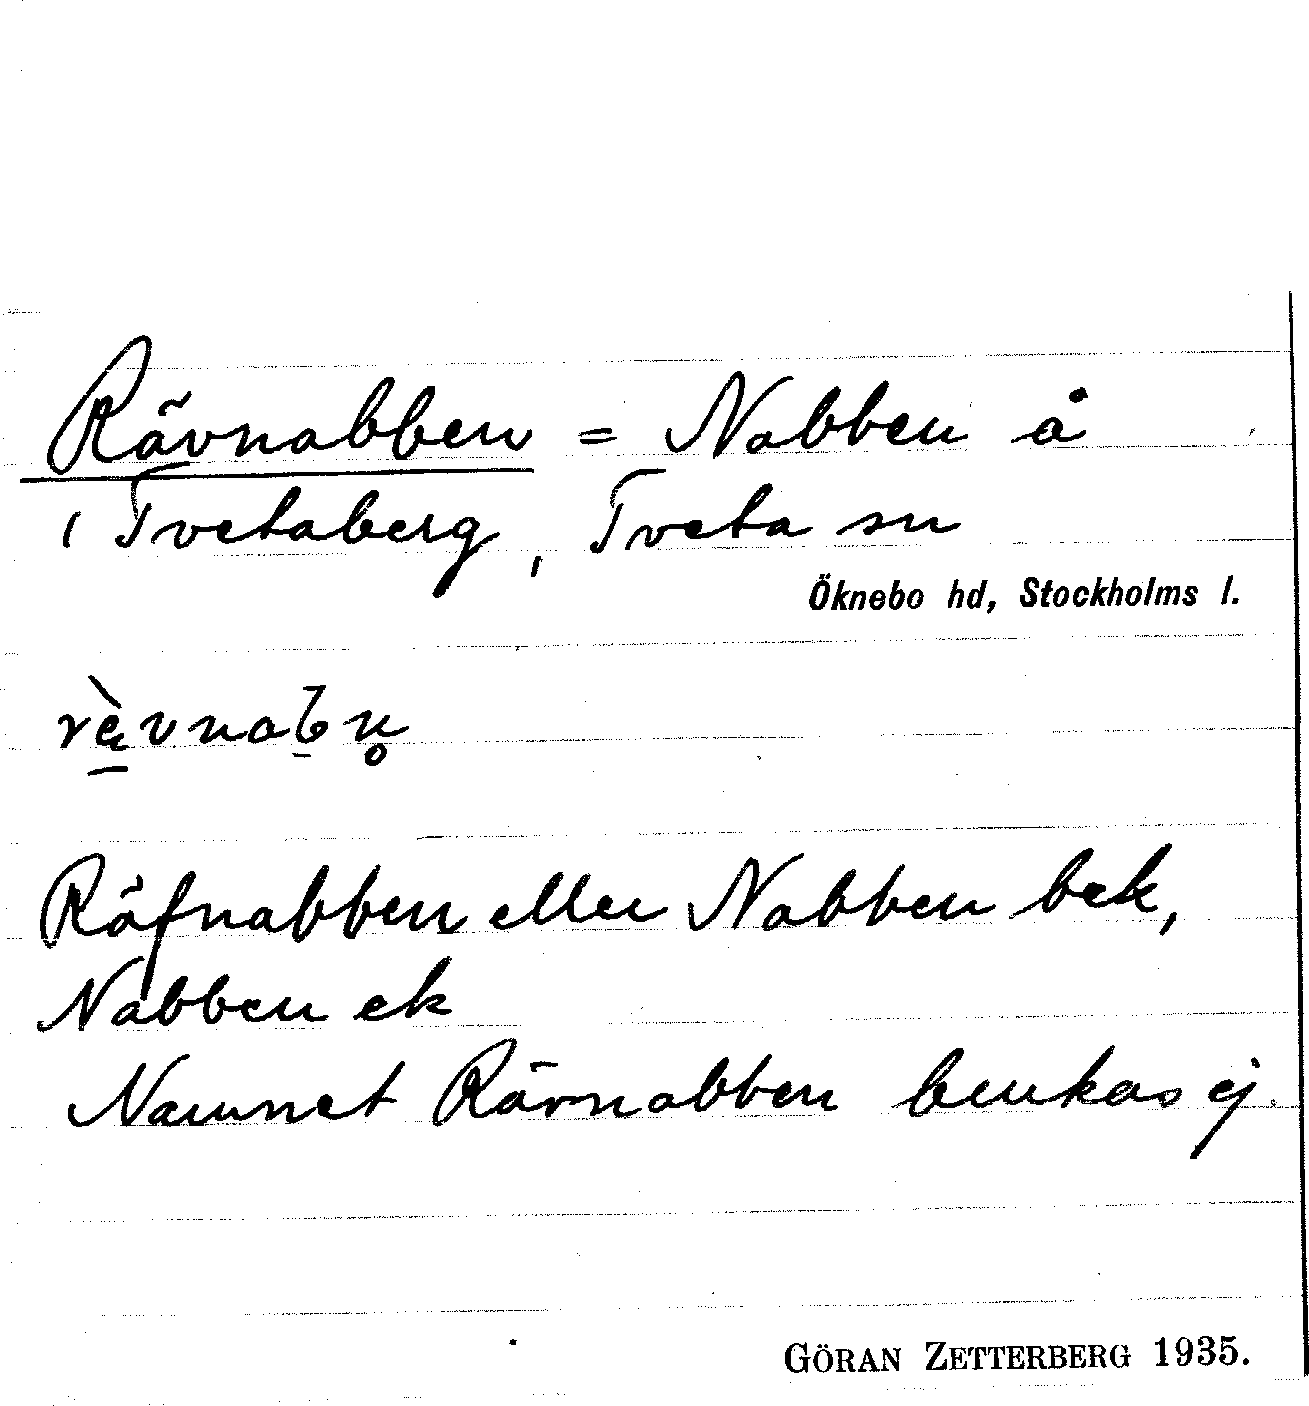 Rävnabben = Nabben å
i Tvetaberg, Tveta sn
Öknebo hd, Stockholms l.
Räfnabben eller Nabben bek,
Nabben ek
Namnet Rävnabben brukas ej.
GÖRAN ZETTERBERG 1935.